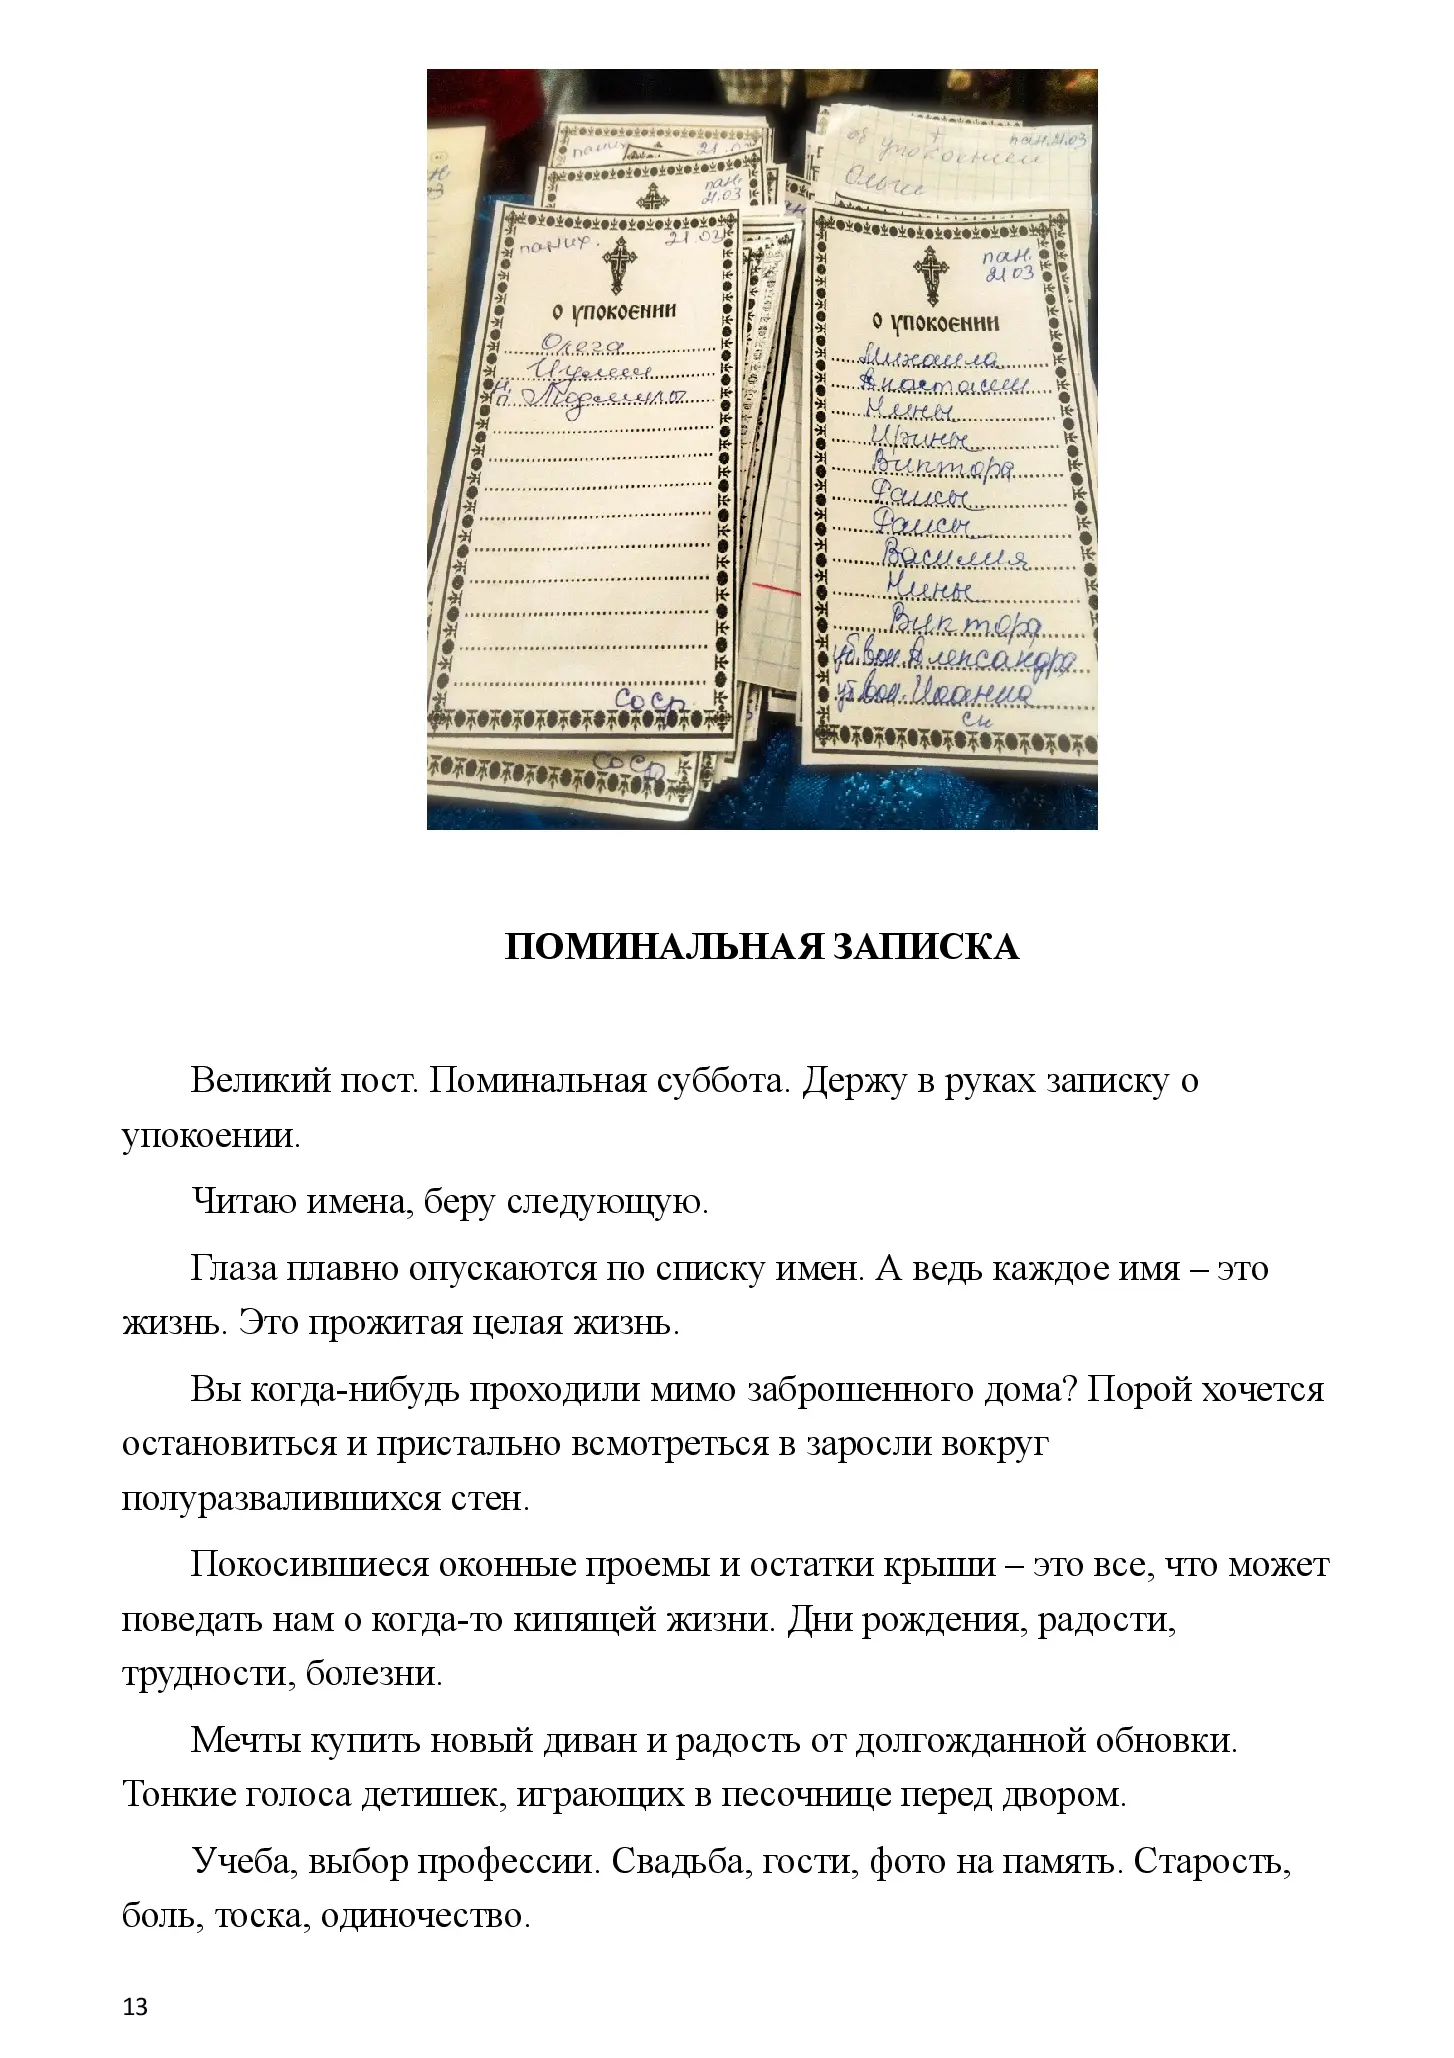 паних. 21.0
пан.
21.03
об упокоении пан.21.03
Ольги
паних. 21.03
о упокоении
Олега
Н. Людмилы
п.
соср.
соср.
пан.
21 03
о упокоении
Михаила
Анастасии
Нины
Ирины
Виктора
Раисы
Раисы
Василия
Нины
Виктора
уб.вои. Александра
уб.вои. Иоанна
ск
ПОМИНАЛЬНАЯ ЗАПИСКА
Великий пост. Поминальная суббота. Держу в руках записку о
упокоении.
Читаю имена, беру следующую.
Глаза плавно опускаются по списку имен. А ведь каждое имя – это
жизнь. Это прожитая целая жизнь.
Вы когда-нибудь проходили мимо заброшенного дома? Порой хочется
остановиться и пристально всмотреться в заросли вокруг
полуразвалившихся стен.
Покосившиеся оконные проемы и остатки крыши – это все, что может
поведать нам о когда-то кипящей жизни. Дни рождения, радости,
трудности, болезни.
Мечты купить новый диван и радость от долгожданной обновки.
Тонкие голоса детишек, играющих в песочнице перед двором.
Учеба, выбор профессии. Свадьба, гости, фото на память. Старость,
боль, тоска, одиночество.
13